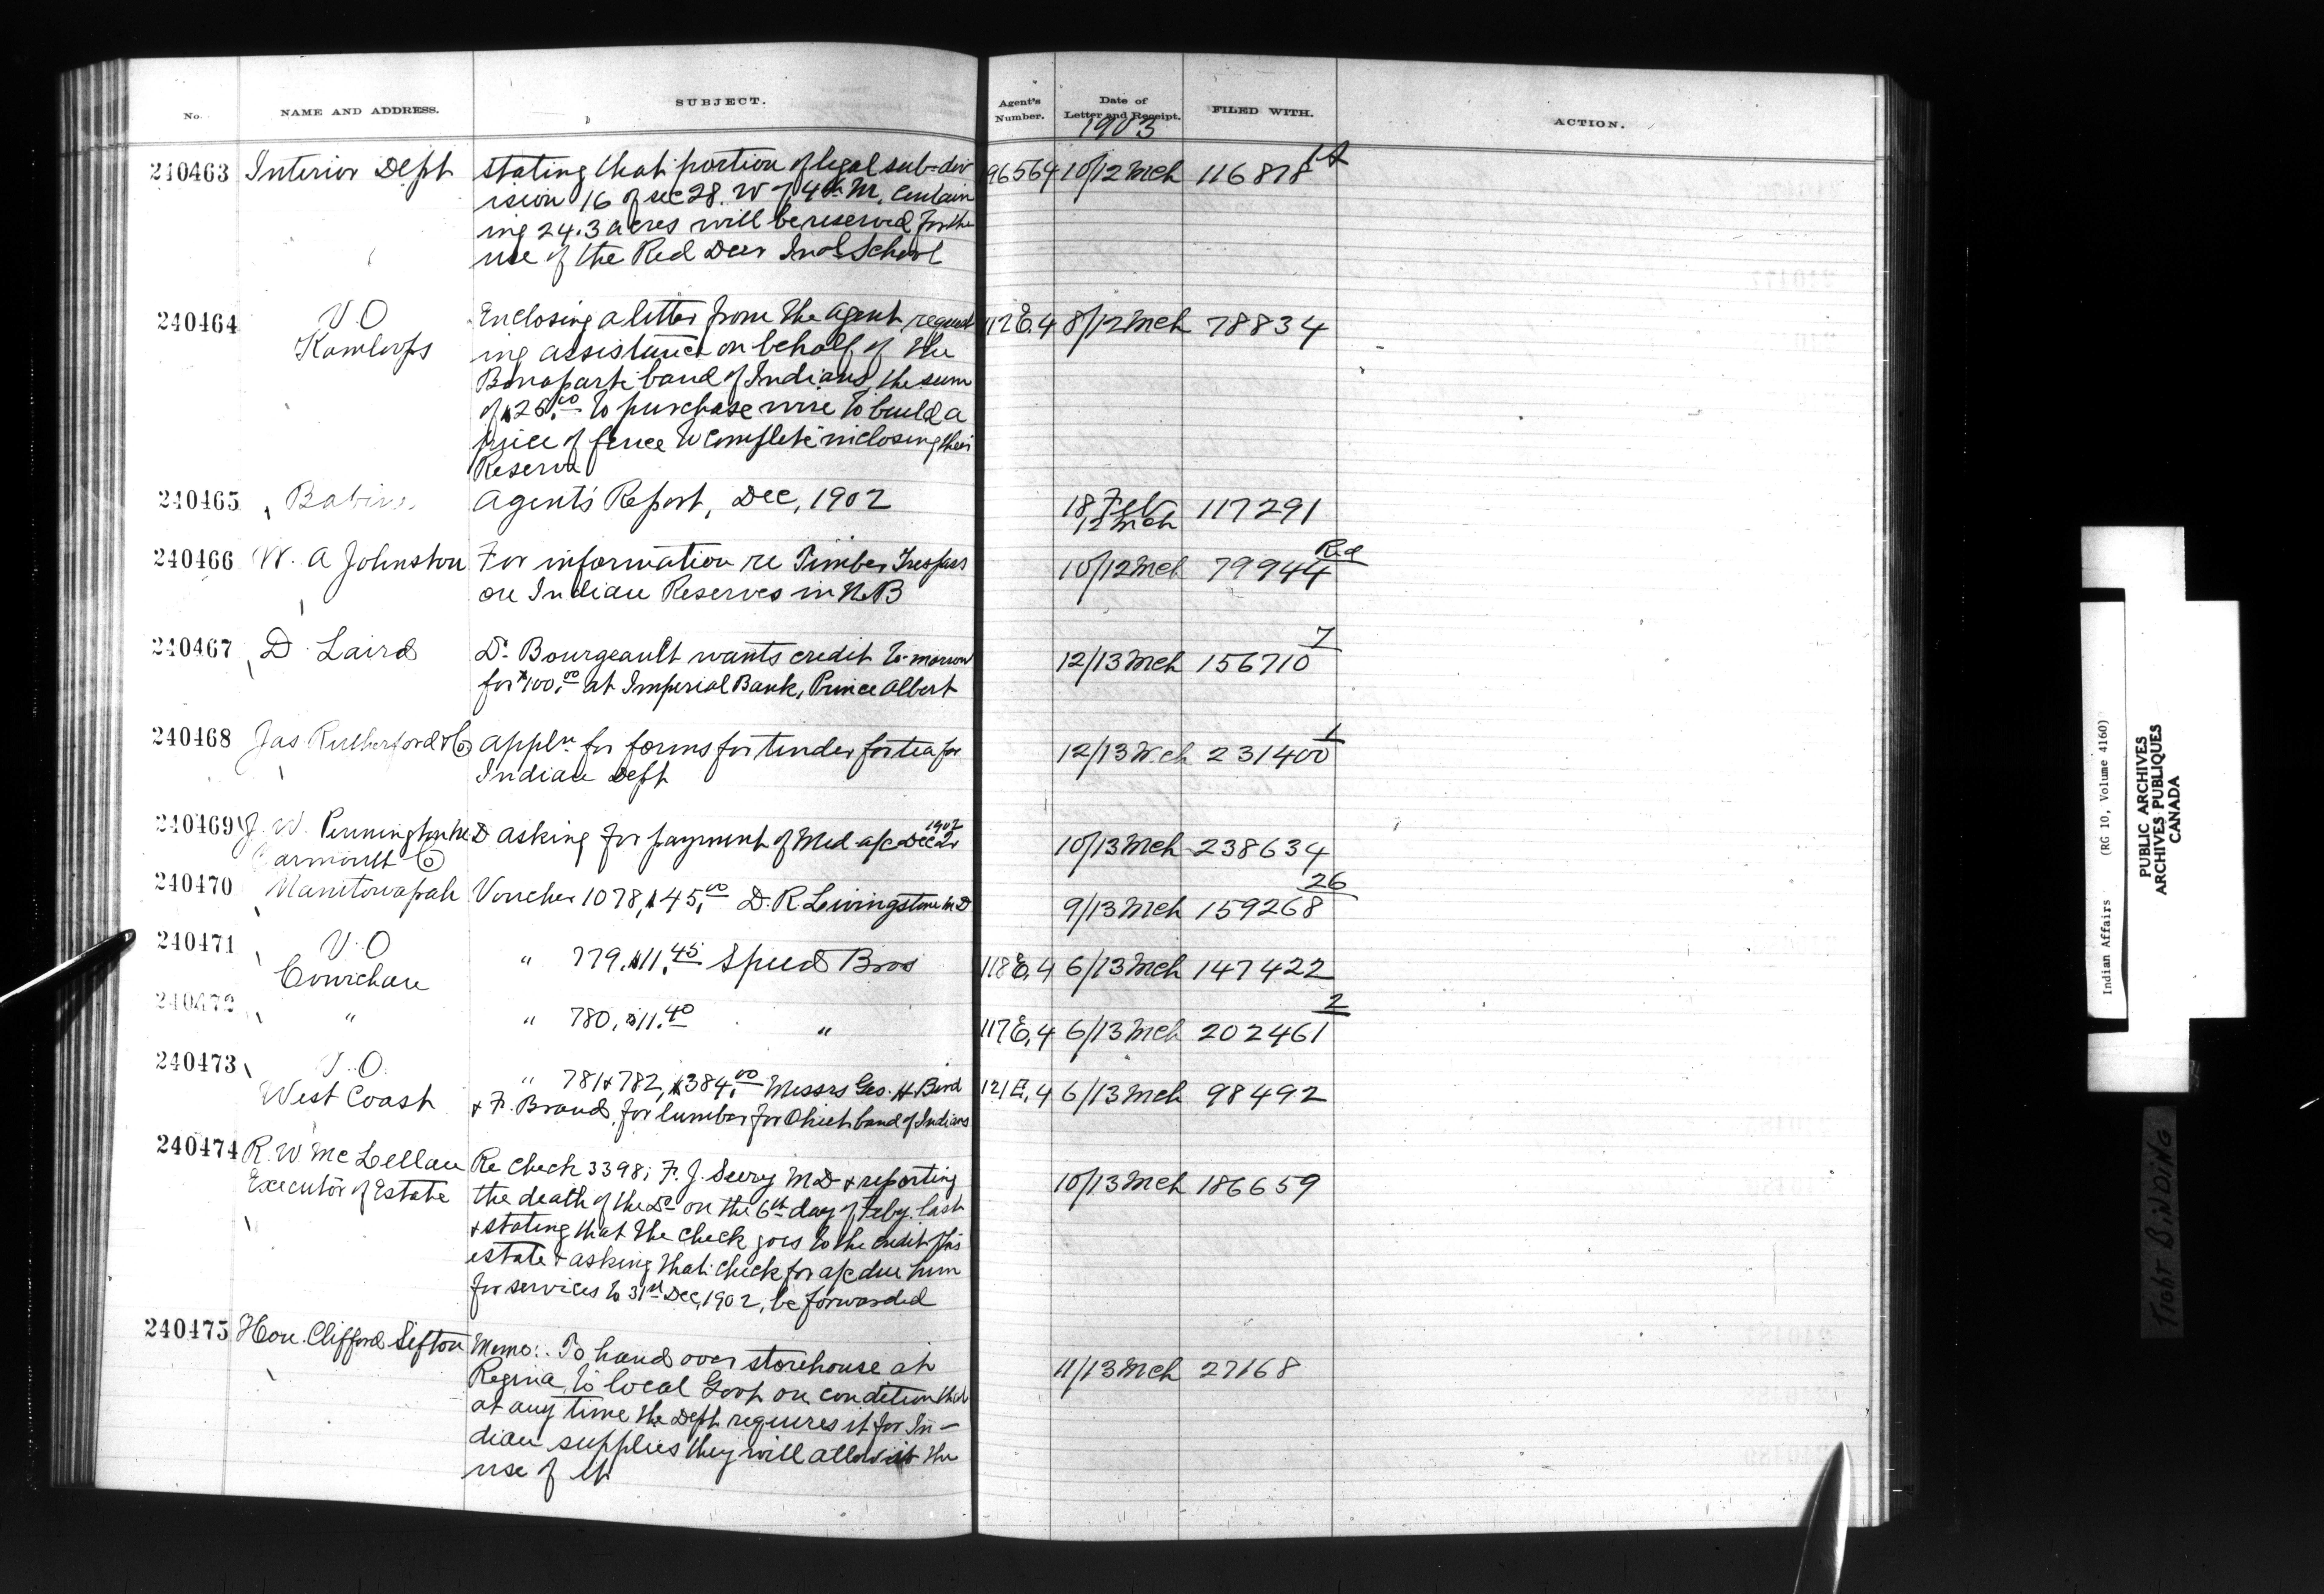 No. NAME AND ADDRESS. SUBJECT. Agent's Number. Date of Letter and Receipt. FILED WITH. ACTION.
1903
240463 Interior Dept stating that portion of legal sub-div 96564 10/12 Mch 116878
ision 16 of sec 28. W of 4th M, contain
ing 24.3 acres will be reserved for the
use of the Red Deer Indl School
240464 V.O Enclosing a letter from the Agent, request 112 E.4 8/12 Mch 78834
Kamloops ing assistance on behalf of the
Bonaparte band of Indians, the sum
of $25.00 to purchase wire to build a
piece of fence to complete inclosing their
Reserve
240465 Babine Agent's Report, Dec, 1902 18 Feb 117291
12 Mch
240466 W. A Johnston For information re Timber Trespass 10/12 Mch 79944 Red
on Indian Reserves in N.B
240467 D. Laird Dr. Bourgeault wants credit to-morrow 12/13 Mch 156710 7
for $100.00 at Imperial Bank, Prince Albert
240468 Jas Rutherford & Co Appln. for forms for tender for tea for 12/13 Mch 231400 1
Indian Dept
240469 J. W. Pennington M.D asking for payment of Med a/c Dec 1902 10/13 Mch 238634
240470 Manitowapah Voucher 1078, $45.00 D. R. Livingstone M.D 9/13 Mch 159268 26
240471 V.O " 779, $11.45 Speed Bros 118 E.4 6/13 Mch 147422
Cowichan
240472 " " 780, $11.40 " 117 E.4 6/13 Mch 202461 2
240473 V.O. " 781 & 782, $384.00 Messrs Geo. H Bird 121 E.4 6/13 Mch 98492
West Coast & F. Brand, for lumber for Ohiet band of Indians
240474 R. W McLellan Re check 3398; F. J. Seery M.D & reporting 10/13 Mch 186659
Executor of Estate the death of the Dr on the 6th day of Feby. last
& stating that the check goes to the credit of his
estate & asking that check for a/c due him
for services to 31st Dec, 1902, be forwarded
240475 Hon. Clifford Sifton Memo:. To hand over storehouse at 11/13 Mch 27168
Regina to local Govt on condition that
at any time the Dept requires it for In-
dian supplies they will allow us the
use of it
Indian Affairs (RG 10, Volume 4160)
PUBLIC ARCHIVES
ARCHIVES PUBLIQUES
CANADA
TIGHT BINDING